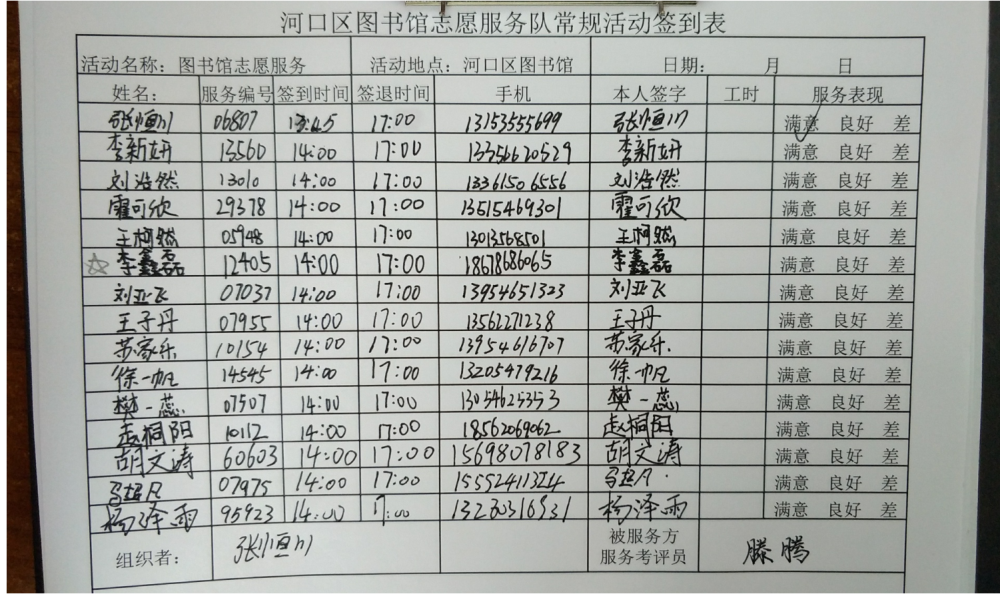 河口区图书馆志愿服务队常规活动签到表
活动名称：图书馆志愿服务 活动地点：河口区图书馆 日期： 月 日
姓名： 服务编号 签到时间 签退时间 手机 本人签字 工时 服务表现
张恒川 06807 13:45 17:00 13153555699 张恒川 满意 良好 差
李新妍 13560 14:00 17:00 13356620529 李新妍 满意 良好 差
刘浩然 13010 14:00 17:00 13361506556 刘浩然 满意 良好 差
霍可欣 29378 14:00 17:00 13515469301 霍可欣 满意 良好 差
王柯然 05948 14:00 17:00 13013568501 王柯然 满意 良好 差
李鑫磊 12405 14:00 17:00 18678686065 李鑫磊 满意 良好 差
刘亚飞 07037 14:00 17:00 13954651323 刘亚飞 满意 良好 差
王子丹 07955 14:00 17:00 13562271238 王子丹 满意 良好 差
苏家乐 10154 14:00 17:00 13954616707 苏家乐 满意 良好 差
徐一帆 14545 14:00 17:00 13205479216 徐一帆 满意 良好 差
樊一蕊 07507 14:00 17:00 13054625353 樊一蕊 满意 良好 差
赵桐阳 10112 14:00 17:00 18562069062 赵桐阳 满意 良好 差
胡文涛 60603 14:00 17:00 15698078183 胡文涛 满意 良好 差
07975 14:00 17:00 15552411324 满意 良好 差
杨泽雨 95923 14:00 17:00 杨泽雨 满意 良好 差
组织者： 张恒川 被服务方
服务考评员 滕腾